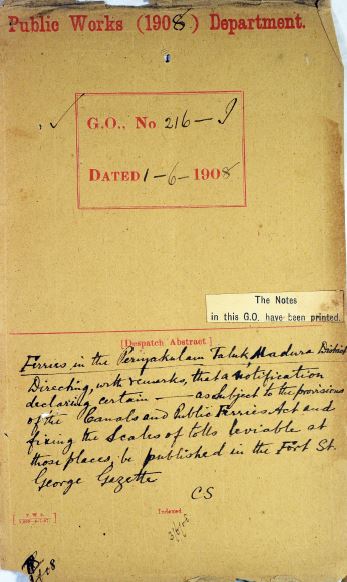 Public Works (1908) Department.
G.O., No 216-I
DATED 1-6-1908
The Notes
in this G.O. have been printed.
[Despatch Abstract]
Ferries in the Periyakulam Taluk, Madura District
Directing, with remarks, that a notification
declaring certain — as subject to the provisions
of the Canals and Public Ferries Act and
fixing the Scales of tolls leviable at
those places, be published in the Fort St.
George Gazette
CS
Indexed